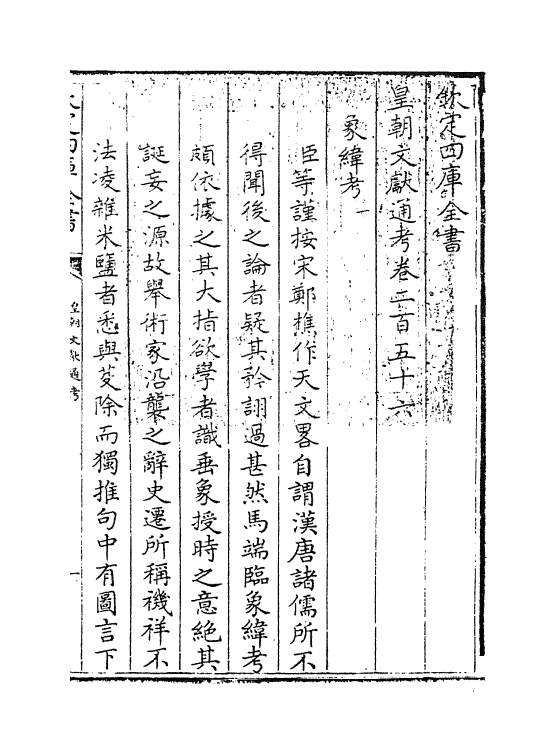 欽定四庫全書
皇朝文獻通考卷二百五十六
象緯考一
臣等謹按宋鄭樵作天文畧自謂漢唐諸儒所不
得聞後之論者疑其矜詡過甚然馬端臨象緯考
頗依據之其大指欲學者識垂象授時之意絕其
誕妄之源故舉術家沿襲之辭史遷所稱禨祥不
法凌雜米鹽者悉與芟除而獨推句中有圖言下
欽定四庫全書
皇朝文獻通考
一